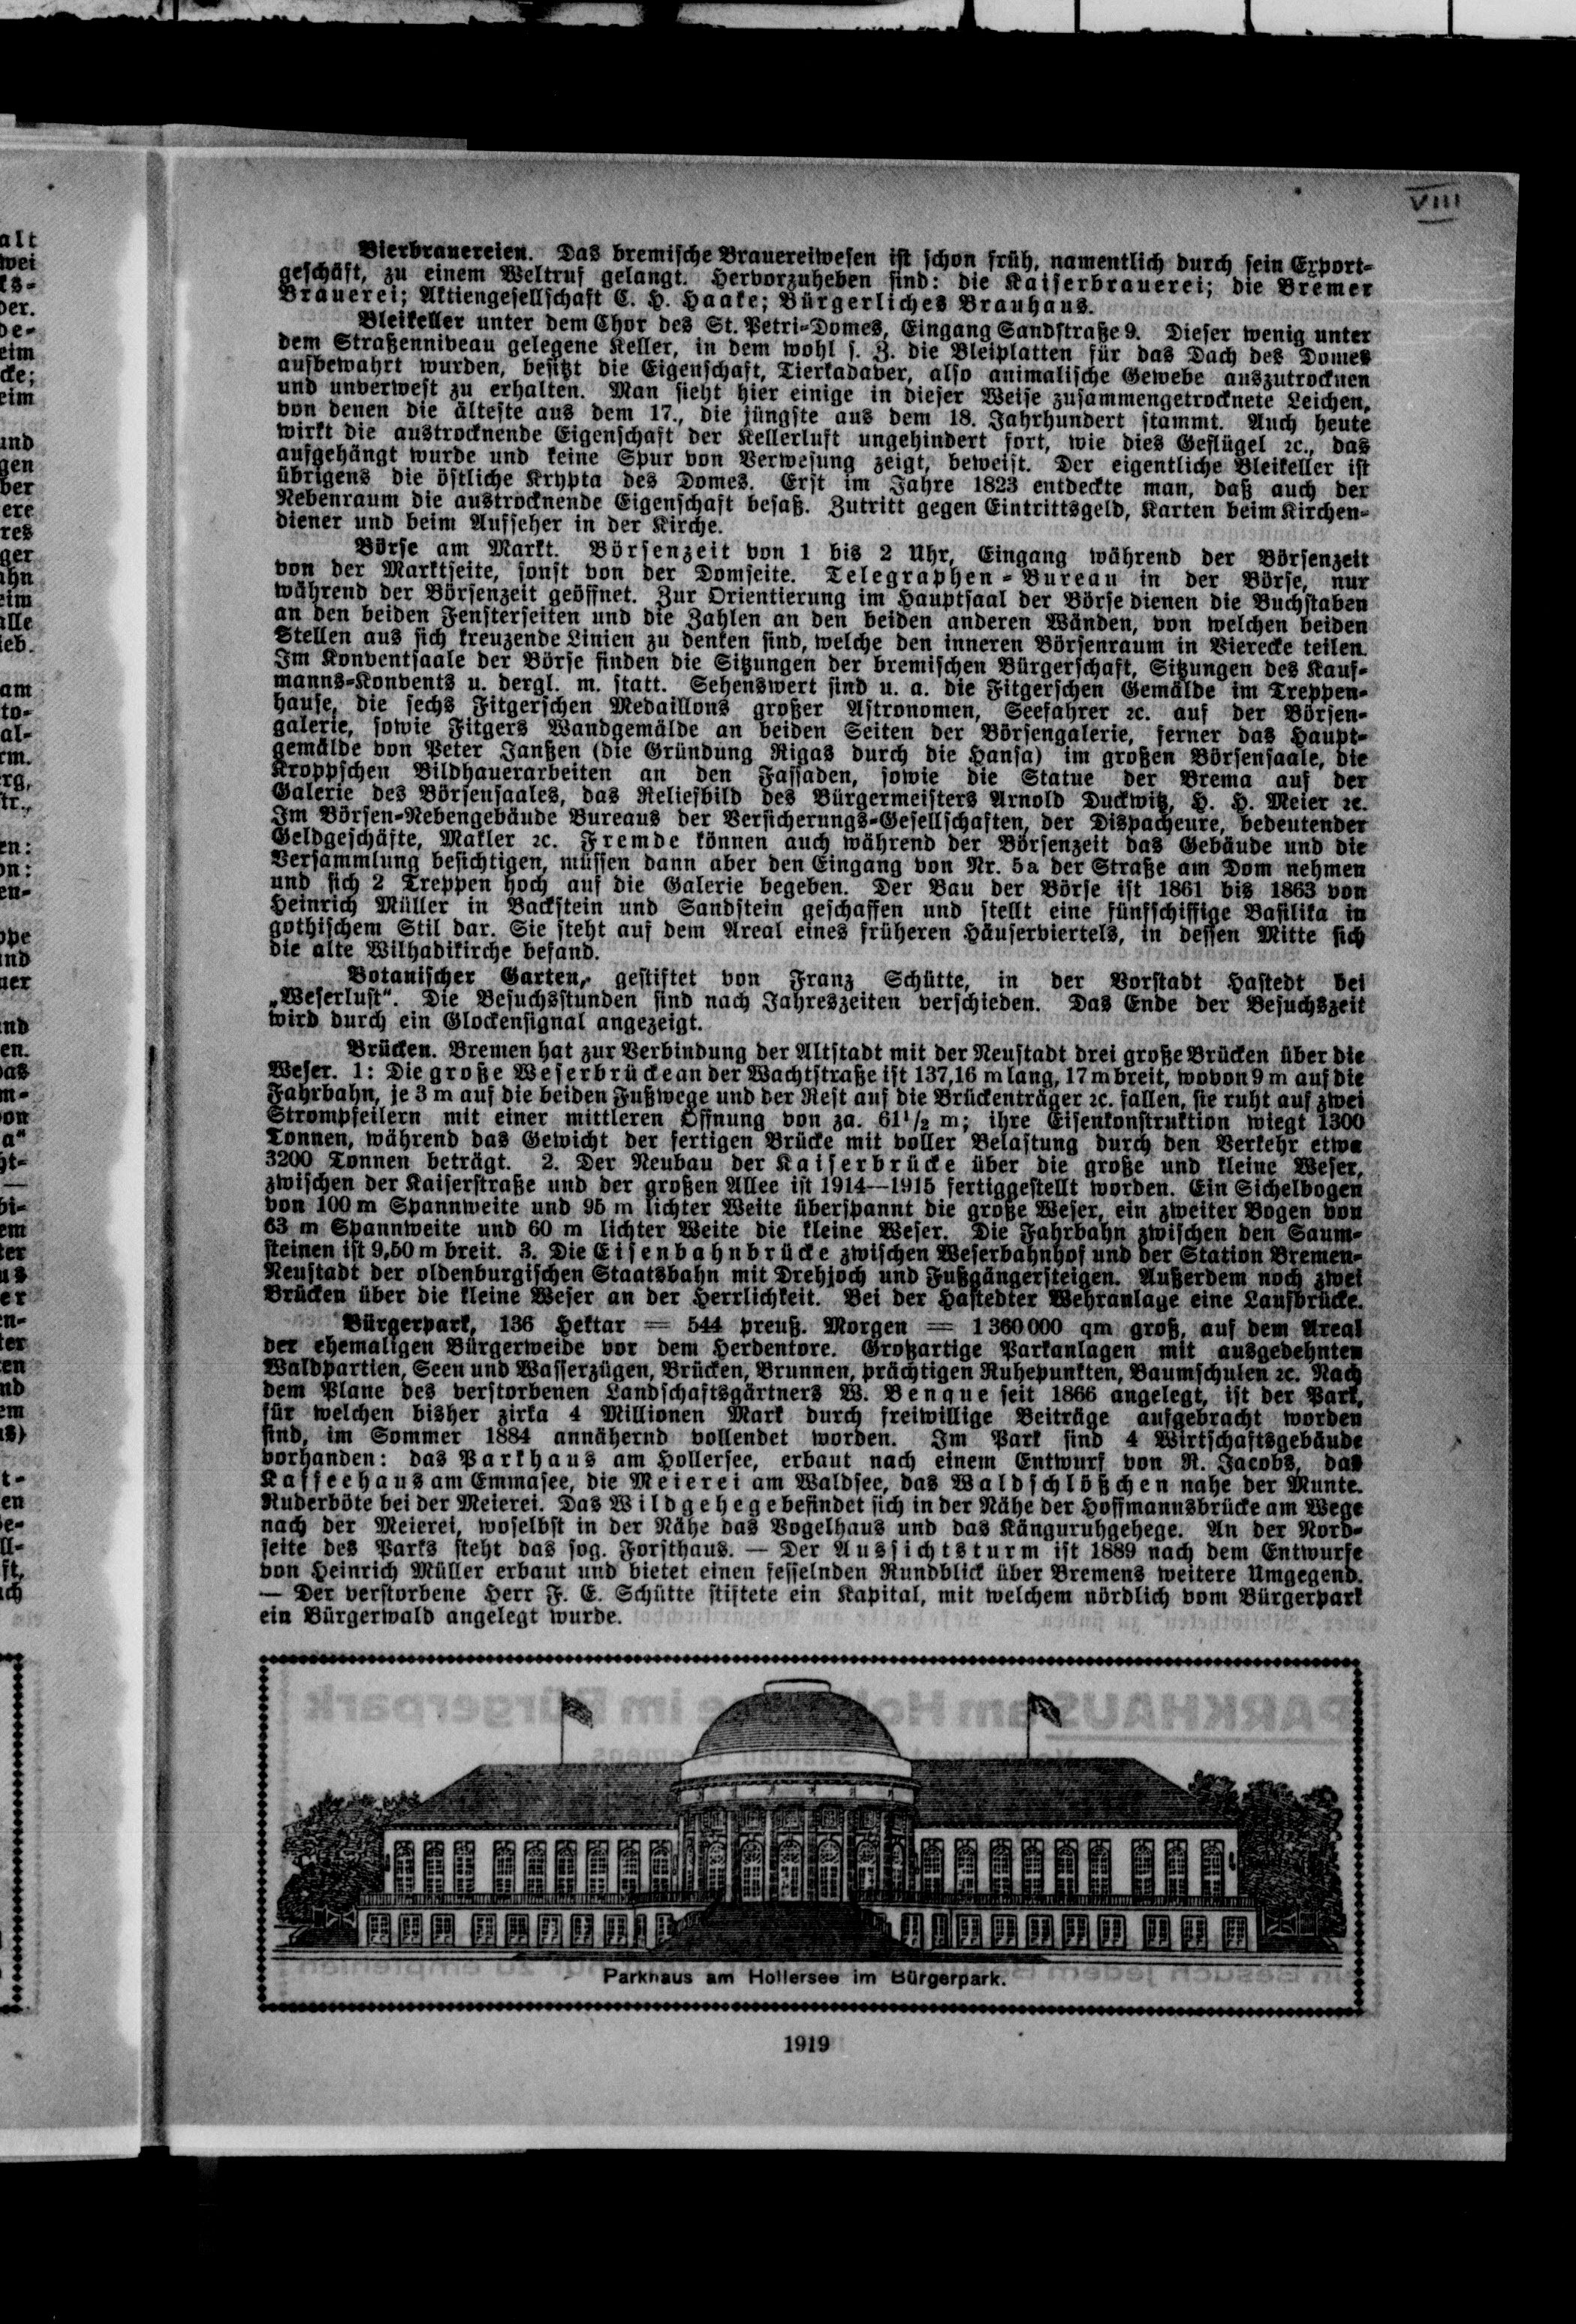 VIII
Bierbrauereien. Das bremische Brauereiwesen ist schon früh, namentlich durch sein Export-
geschäft, zu einem Weltruf gelangt. Hervorzuheben sind: die Kaiserbrauerei; die Bremer
Brauerei; Aktiengesellschaft C. H. Haake; Bürgerliches Brauhaus.
Bleikeller unter dem Chor des St. Petri-Domes, Eingang Sandstraße 9. Dieser wenig unter
dem Straßenniveau gelegene Keller, in dem wohl s. Z. die Bleiplatten für das Dach des Domes
aufbewahrt wurden, besitzt die Eigenschaft, Tierkadaver, also animalische Gewebe auszutrocknen
und unverwest zu erhalten. Man sieht hier einige in dieser Weise zusammengetrocknete Leichen,
von denen die älteste aus dem 17., die jüngste aus dem 18. Jahrhundert stammt. Auch heute
wirkt die austrocknende Eigenschaft der Kellerluft ungehindert fort, wie dies Geflügel ꝛc., das
aufgehängt wurde und keine Spur von Verwesung zeigt, beweist. Der eigentliche Bleikeller ist
übrigens die östliche Krypta des Domes. Erst im Jahre 1823 entdeckte man, daß auch der
Nebenraum die austrocknende Eigenschaft besaß. Zutritt gegen Eintrittsgeld, Karten beim Kirchen-
diener und beim Aufseher in der Kirche.
Börse am Markt. Börsenzeit von 1 bis 2 Uhr, Eingang während der Börsenzeit
von der Marktseite, sonst von der Domseite. Telegraphen-Bureau in der Börse, nur
während der Börsenzeit geöffnet. Zur Orientierung im Hauptsaal der Börse dienen die Buchstaben
an den beiden Fensterseiten und die Zahlen an den beiden anderen Wänden, von welchen beiden
Stellen aus sich kreuzende Linien zu denken sind, welche den inneren Börsenraum in Vierecke teilen.
Im Konventsaale der Börse finden die Sitzungen der bremischen Bürgerschaft, Sitzungen des Kauf-
manns-Konvents u. dergl. m. statt. Sehenswert sind u. a. die Fitgerschen Gemälde im Treppen-
hause, die sechs Fitgerschen Medaillons großer Astronomen, Seefahrer ꝛc. auf der Börsen-
galerie, sowie Fitgers Wandgemälde an beiden Seiten der Börsengalerie, ferner das Haupt-
gemälde von Peter Janßen (die Gründung Rigas durch die Hansa) im großen Börsensaale, die
Kroppschen Bildhauerarbeiten an den Fassaden, sowie die Statue der Brema auf der
Galerie des Börsensaales, das Reliefbild des Bürgermeisters Arnold Duckwitz, H. H. Meier ꝛc.
Im Börsen-Nebengebäude Bureaus der Versicherungs-Gesellschaften, der Dispacheure, bedeutender
Geldgeschäfte, Makler ꝛc. Fremde können auch während der Börsenzeit das Gebäude und die
Versammlung besichtigen, müssen dann aber den Eingang von Nr. 5a der Straße am Dom nehmen
und sich 2 Treppen hoch auf die Galerie begeben. Der Bau der Börse ist 1861 bis 1863 von
Heinrich Müller in Backstein und Sandstein geschaffen und stellt eine fünfschiffige Basilika in
gothischem Stil dar. Sie steht auf dem Areal eines früheren Häuserviertels, in dessen Mitte sich
die alte Wilhadikirche befand.
Botanischer Garten, gestiftet von Franz Schütte, in der Vorstadt Hastedt bei
„Weserlust“. Die Besuchsstunden sind nach Jahreszeiten verschieden. Das Ende der Besuchszeit
wird durch ein Glockensignal angezeigt.
Brücken. Bremen hat zur Verbindung der Altstadt mit der Neustadt drei große Brücken über die
Weser. 1: Die große Weserbrücke an der Wachtstraße ist 137,16 m lang, 17 m breit, wovon 9 m auf die
Fahrbahn, je 3 m auf die beiden Fußwege und der Rest auf die Brückenträger ꝛc. fallen, sie ruht auf zwei
Strompfeilern mit einer mittleren Öffnung von za. 61½ m; ihre Eisenkonstruktion wiegt 1300
Tonnen, während das Gewicht der fertigen Brücke mit voller Belastung durch den Verkehr etwa
3200 Tonnen beträgt. 2. Der Neubau der Kaiserbrücke über die große und kleine Weser,
zwischen der Kaiserstraße und der großen Allee ist 1914—1915 fertiggestellt worden. Ein Sichelbogen
von 100 m Spannweite und 95 m lichter Weite überspannt die große Weser, ein zweiter Bogen von
63 m Spannweite und 60 m lichter Weite die kleine Weser. Die Fahrbahn zwischen den Saum-
steinen ist 9,50 m breit. 3. Die Eisenbahnbrücke zwischen Weserbahnhof und der Station Bremen-
Neustadt der oldenburgischen Staatsbahn mit Drehjoch und Fußgängersteigen. Außerdem noch zwei
Brücken über die kleine Weser an der Herrlichkeit. Bei der Hastedter Wehranlage eine Laufbrücke.
Bürgerpark, 136 Hektar = 544 preuß. Morgen = 1 360 000 qm groß, auf dem Areal
der ehemaligen Bürgerweide vor dem Herdentore. Großartige Parkanlagen mit ausgedehnten
Waldpartien, Seen und Wasserzügen, Brücken, Brunnen, prächtigen Ruhepunkten, Baumschulen ꝛc. Nach
dem Plane des verstorbenen Landschaftsgärtners W. Benque seit 1866 angelegt, ist der Park,
für welchen bisher zirka 4 Millionen Mark durch freiwillige Beiträge aufgebracht worden
sind, im Sommer 1884 annähernd vollendet worden. Im Park sind 4 Wirtschaftsgebäude
vorhanden: das Parkhaus am Hollersee, erbaut nach einem Entwurf von R. Jacobs, das
Kaffeehaus am Emmasee, die Meierei am Waldsee, das Waldschlößchen nahe der Munte.
Ruderböte bei der Meierei. Das Wildgehege befindet sich in der Nähe der Hoffmannsbrücke am Wege
nach der Meierei, woselbst in der Nähe das Vogelhaus und das Känguruhgehege. An der Nord-
seite des Parks steht das sog. Forsthaus. — Der Aussichtsturm ist 1889 nach dem Entwurfe
von Heinrich Müller erbaut und bietet einen fesselnden Rundblick über Bremens weitere Umgegend.
— Der verstorbene Herr F. E. Schütte stiftete ein Kapital, mit welchem nördlich vom Bürgerpark
ein Bürgerwald angelegt wurde.
Parkhaus am Hollersee im Bürgerpark.
1919